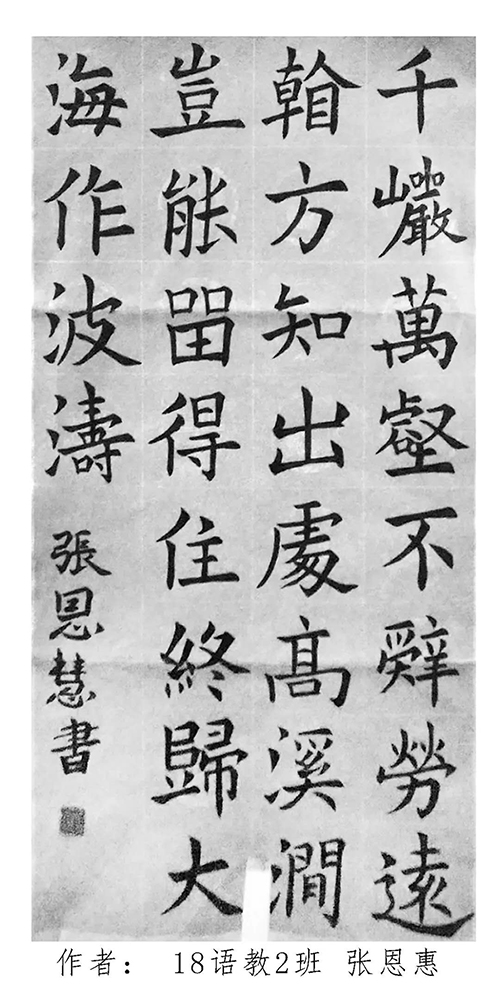 千巗萬壑不辭勞遠
方知出處高溪澗
豈能留得住終歸大
海作波濤
張恩慧書
作者： 18语教2班 张恩惠